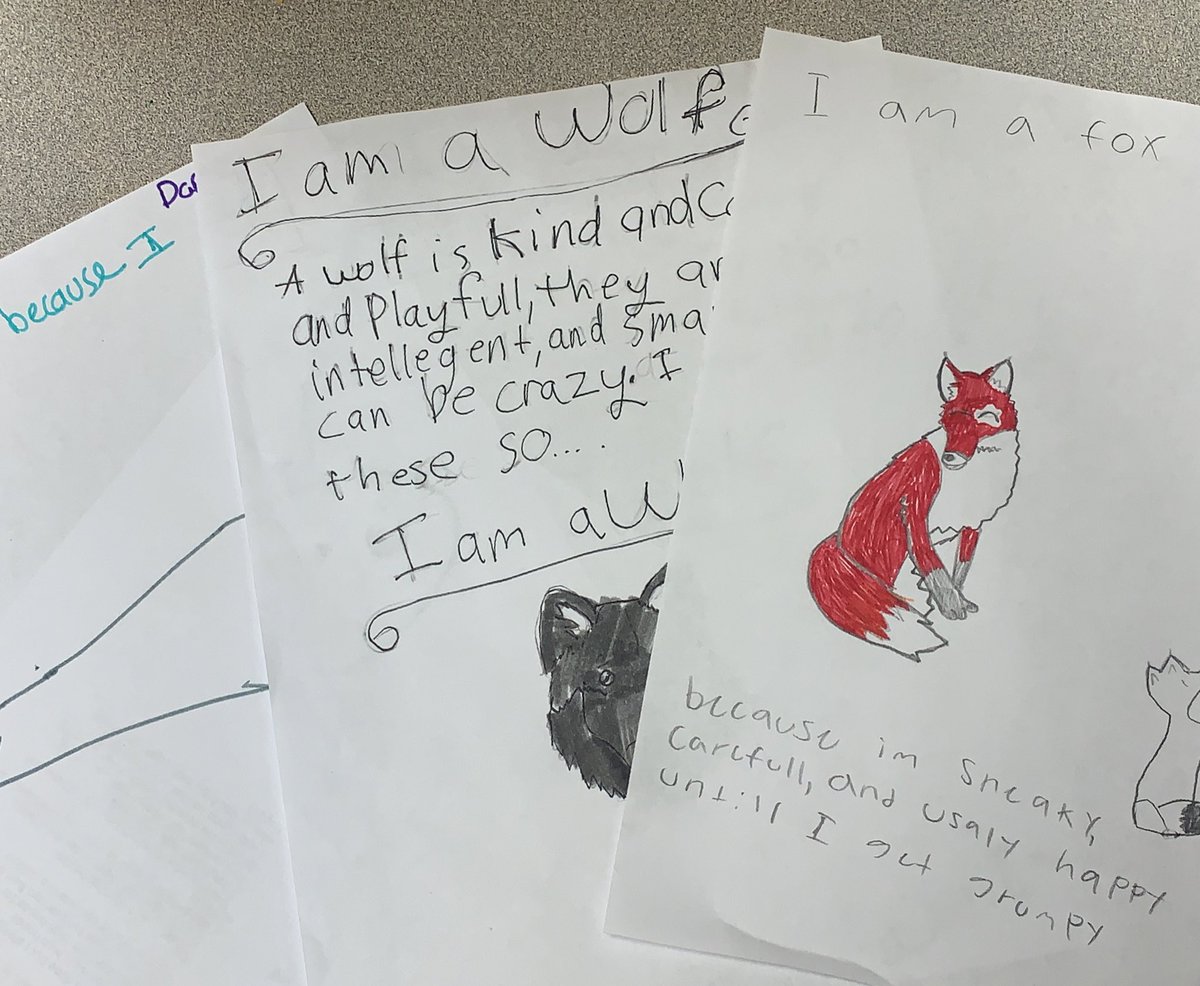 because I
I am a Wolf
A wolf is kind and
and Playfull, they
intellegent, and
can be crazy. I
these so....
I am a
I am a fox
because im sneaky,
carefull, and usaly happy
untill I get grumpy